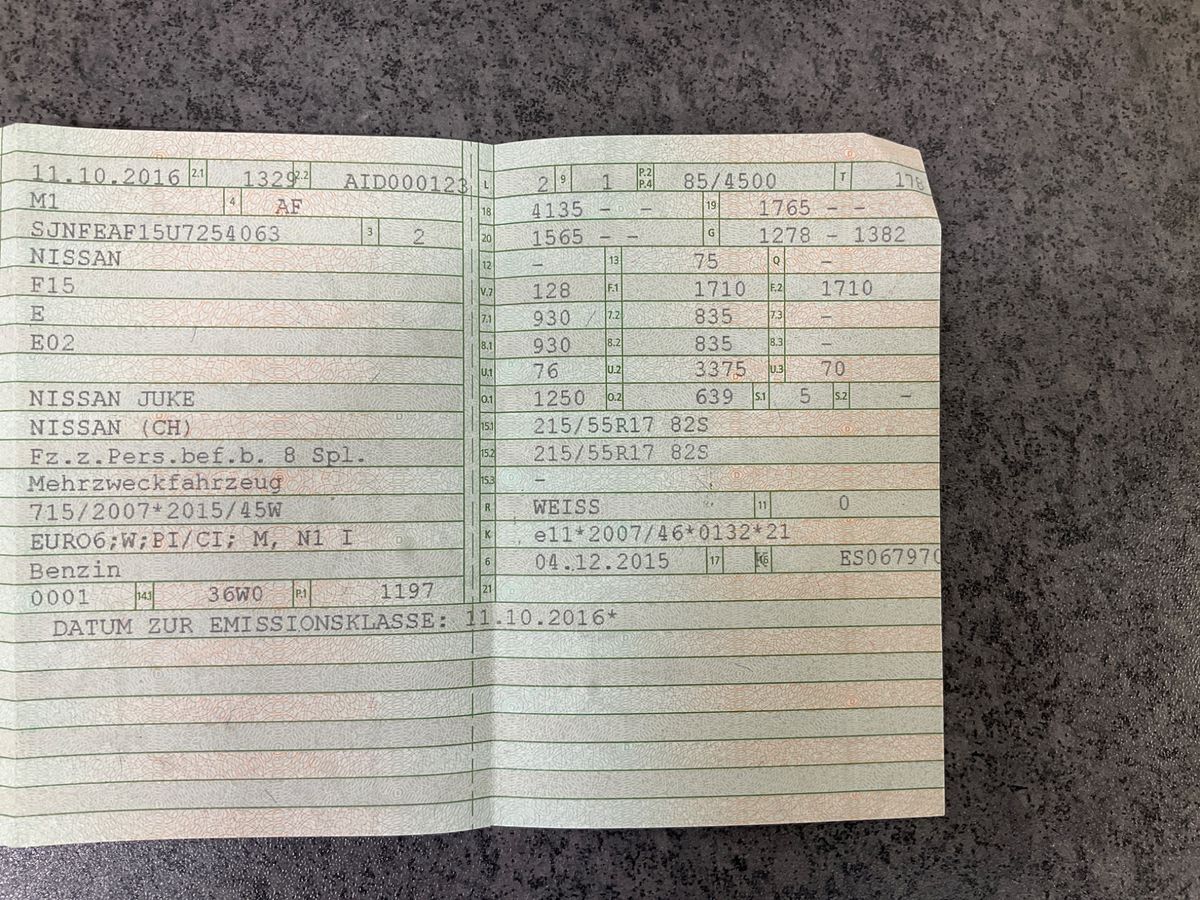 11.10.2016 2.1 1329 2.2 AID000123 L 2 9 1 P.2 P.4 85/4500 T 178
M1 4 AF 18 4135 - - 19 1765 - -
SJNFEAF15U7254063 3 2 20 1565 - - G 1278 - 1382
NISSAN 12 - 13 75 Q -
F15 V.7 128 F.1 1710 F.2 1710
E 7.1 930 7.2 835 7.3 -
E02 8.1 930 8.2 835 8.3 -
U.1 76 U.2 3375 U.3 70
NISSAN JUKE O.1 1250 O.2 639 S.1 5 S.2 -
NISSAN (CH) 15.1 215/55R17 82S
Fz.z.Pers.bef.b. 8 Spl. 15.2 215/55R17 82S
Mehrzweckfahrzeug 15.3 -
715/2007*2015/45W R WEISS 11 0
EURO6;W;PI/CI; M, N1 I K e11*2007/46*0132*21
Benzin 6 04.12.2015 17 16 ES067970
0001 14.1 36W0 P.1 1197 21
DATUM ZUR EMISSIONSKLASSE: 11.10.2016*